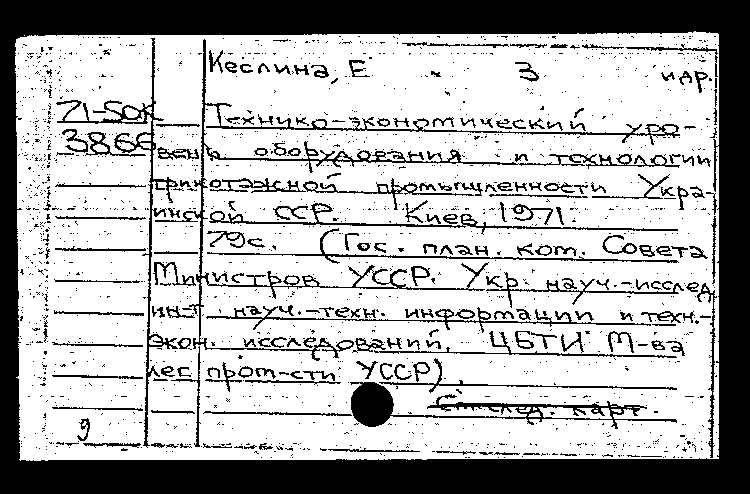 Кеслина, Е. З и др.
71-5ОК Технико-экономический уро-
3866 вень оборудования и технологии
трикотажной промышленности Укра-
инской ССР. Киев, 1971.
79с. (Гос. план. ком. Совета
Министров УССР. Укр. науч.-исслед
ин-т науч.-техн. информации и техн.-
экон. исследований. ЦБТИ М-ва
лег пром-сти УССР).
См. след. карт.
9